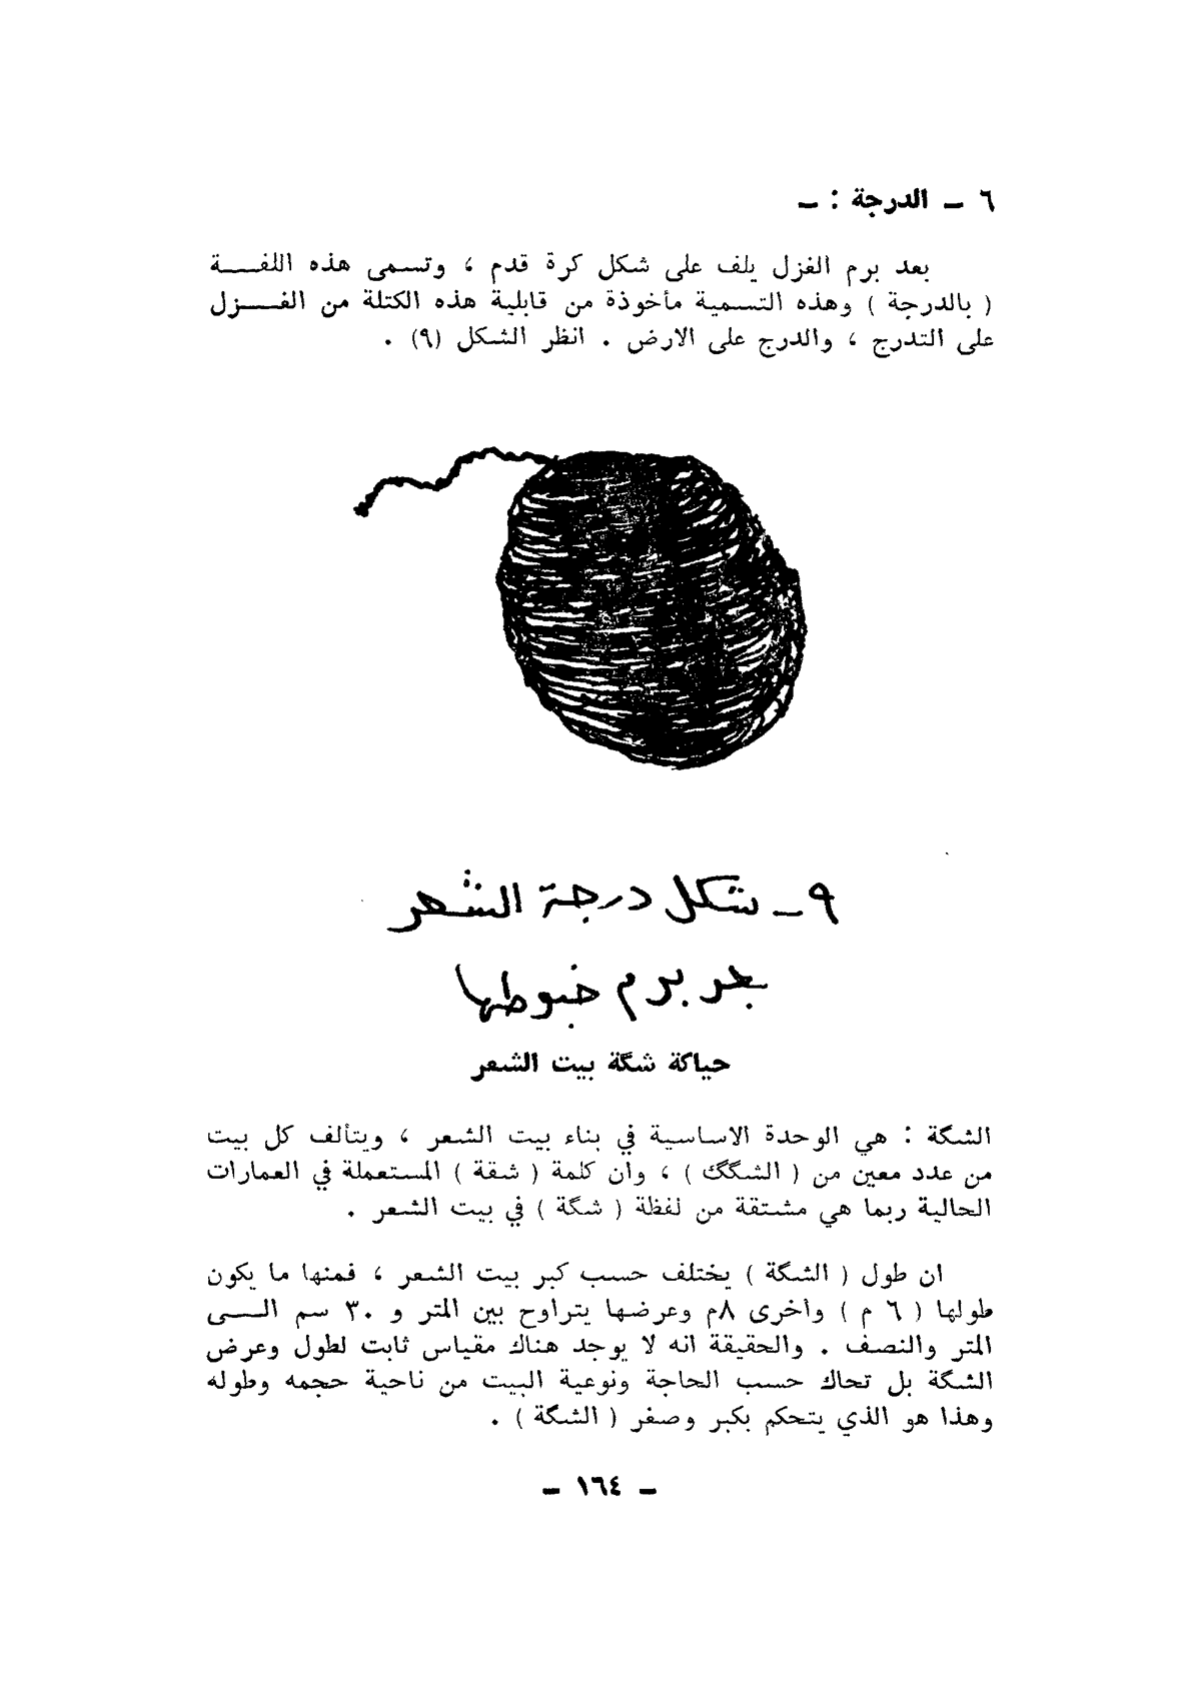 ٦ ــ الدرجة : ــ
بعد برم الغزل يلف على شكل كرة قدم ، وتسمى هذه اللفـــة
( بالدرجة ) وهذه التسمية مأخوذة من قابلية هذه الكتلة من الغـــزل
على التدرج ، والدرج على الارض . انظر الشكل (٩) .
٩ــ شكل درجة الشعر
بعد برم خيوطها
حياكة شگة بيت الشعر
الشگة : هي الوحدة الاساسية في بناء بيت الشعر ، ويتألف كل بيت
من عدد معين من ( الشگگ ) ، وان كلمة ( شقة ) المستعملة في العمارات
الحالية ربما هي مشتقة من لفظة ( شگة ) في بيت الشعر .
ان طول ( الشگة ) يختلف حسب كبر بيت الشعر ، فمنها ما يكون
طولها ( ٦ م ) وأخرى ٨م وعرضها يتراوح بين المتر و ٣٠ سم الـــى
المتر والنصف . والحقيقة انه لا يوجد هناك مقياس ثابت لطول وعرض
الشگة بل تحاك حسب الحاجة ونوعية البيت من ناحية حجمه وطوله
وهذا هو الذي يتحكم بكبر وصغر ( الشگة ) .
ــ ١٦٤ ــ